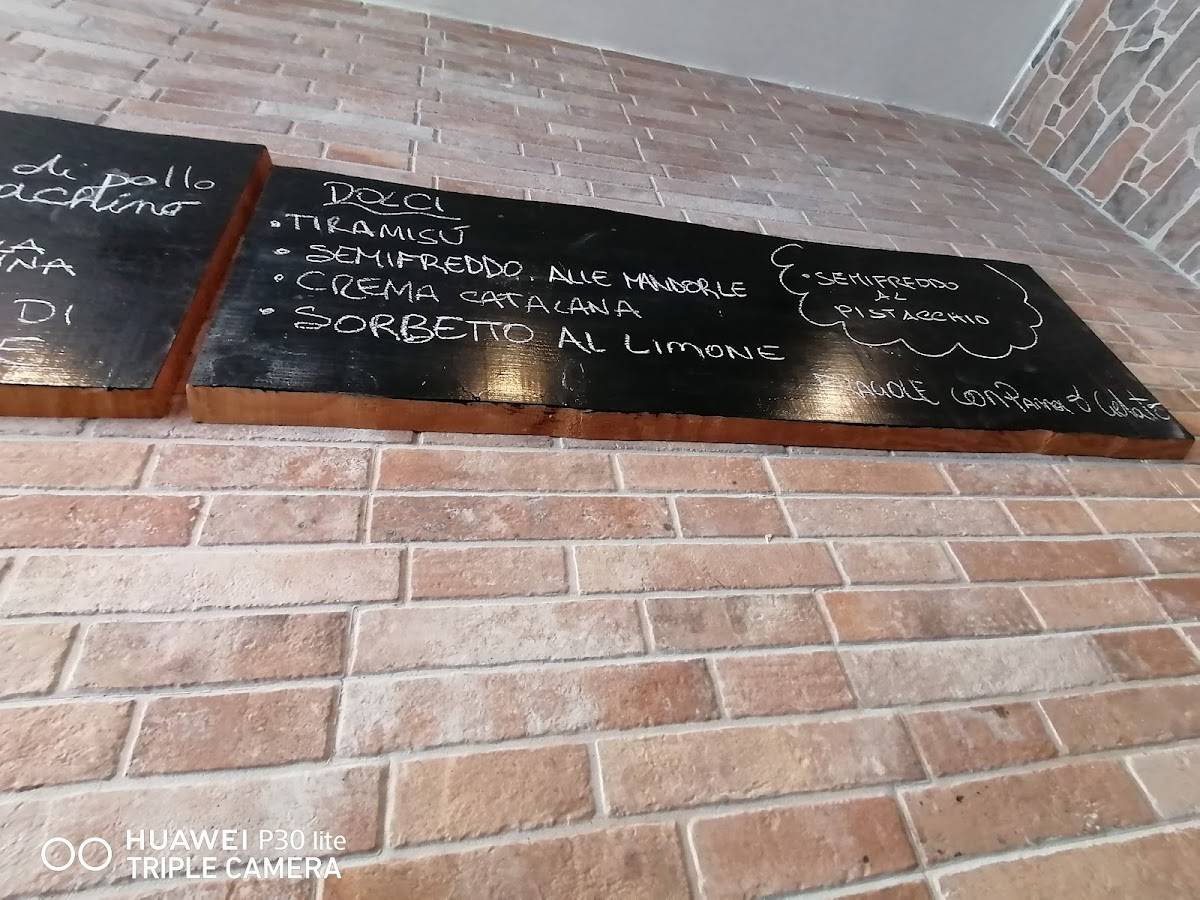 di pollo
DI
DOLCI
• TIRAMISÚ
• SEMIFREDDO ALLE MANDORLE
• CREMA CATALANA
• SORBETTO AL LIMONE
• SEMIFREDDO
AL
PISTACCHIO
FRAGOLE CON Panna
HUAWEI P30 lite
TRIPLE CAMERA